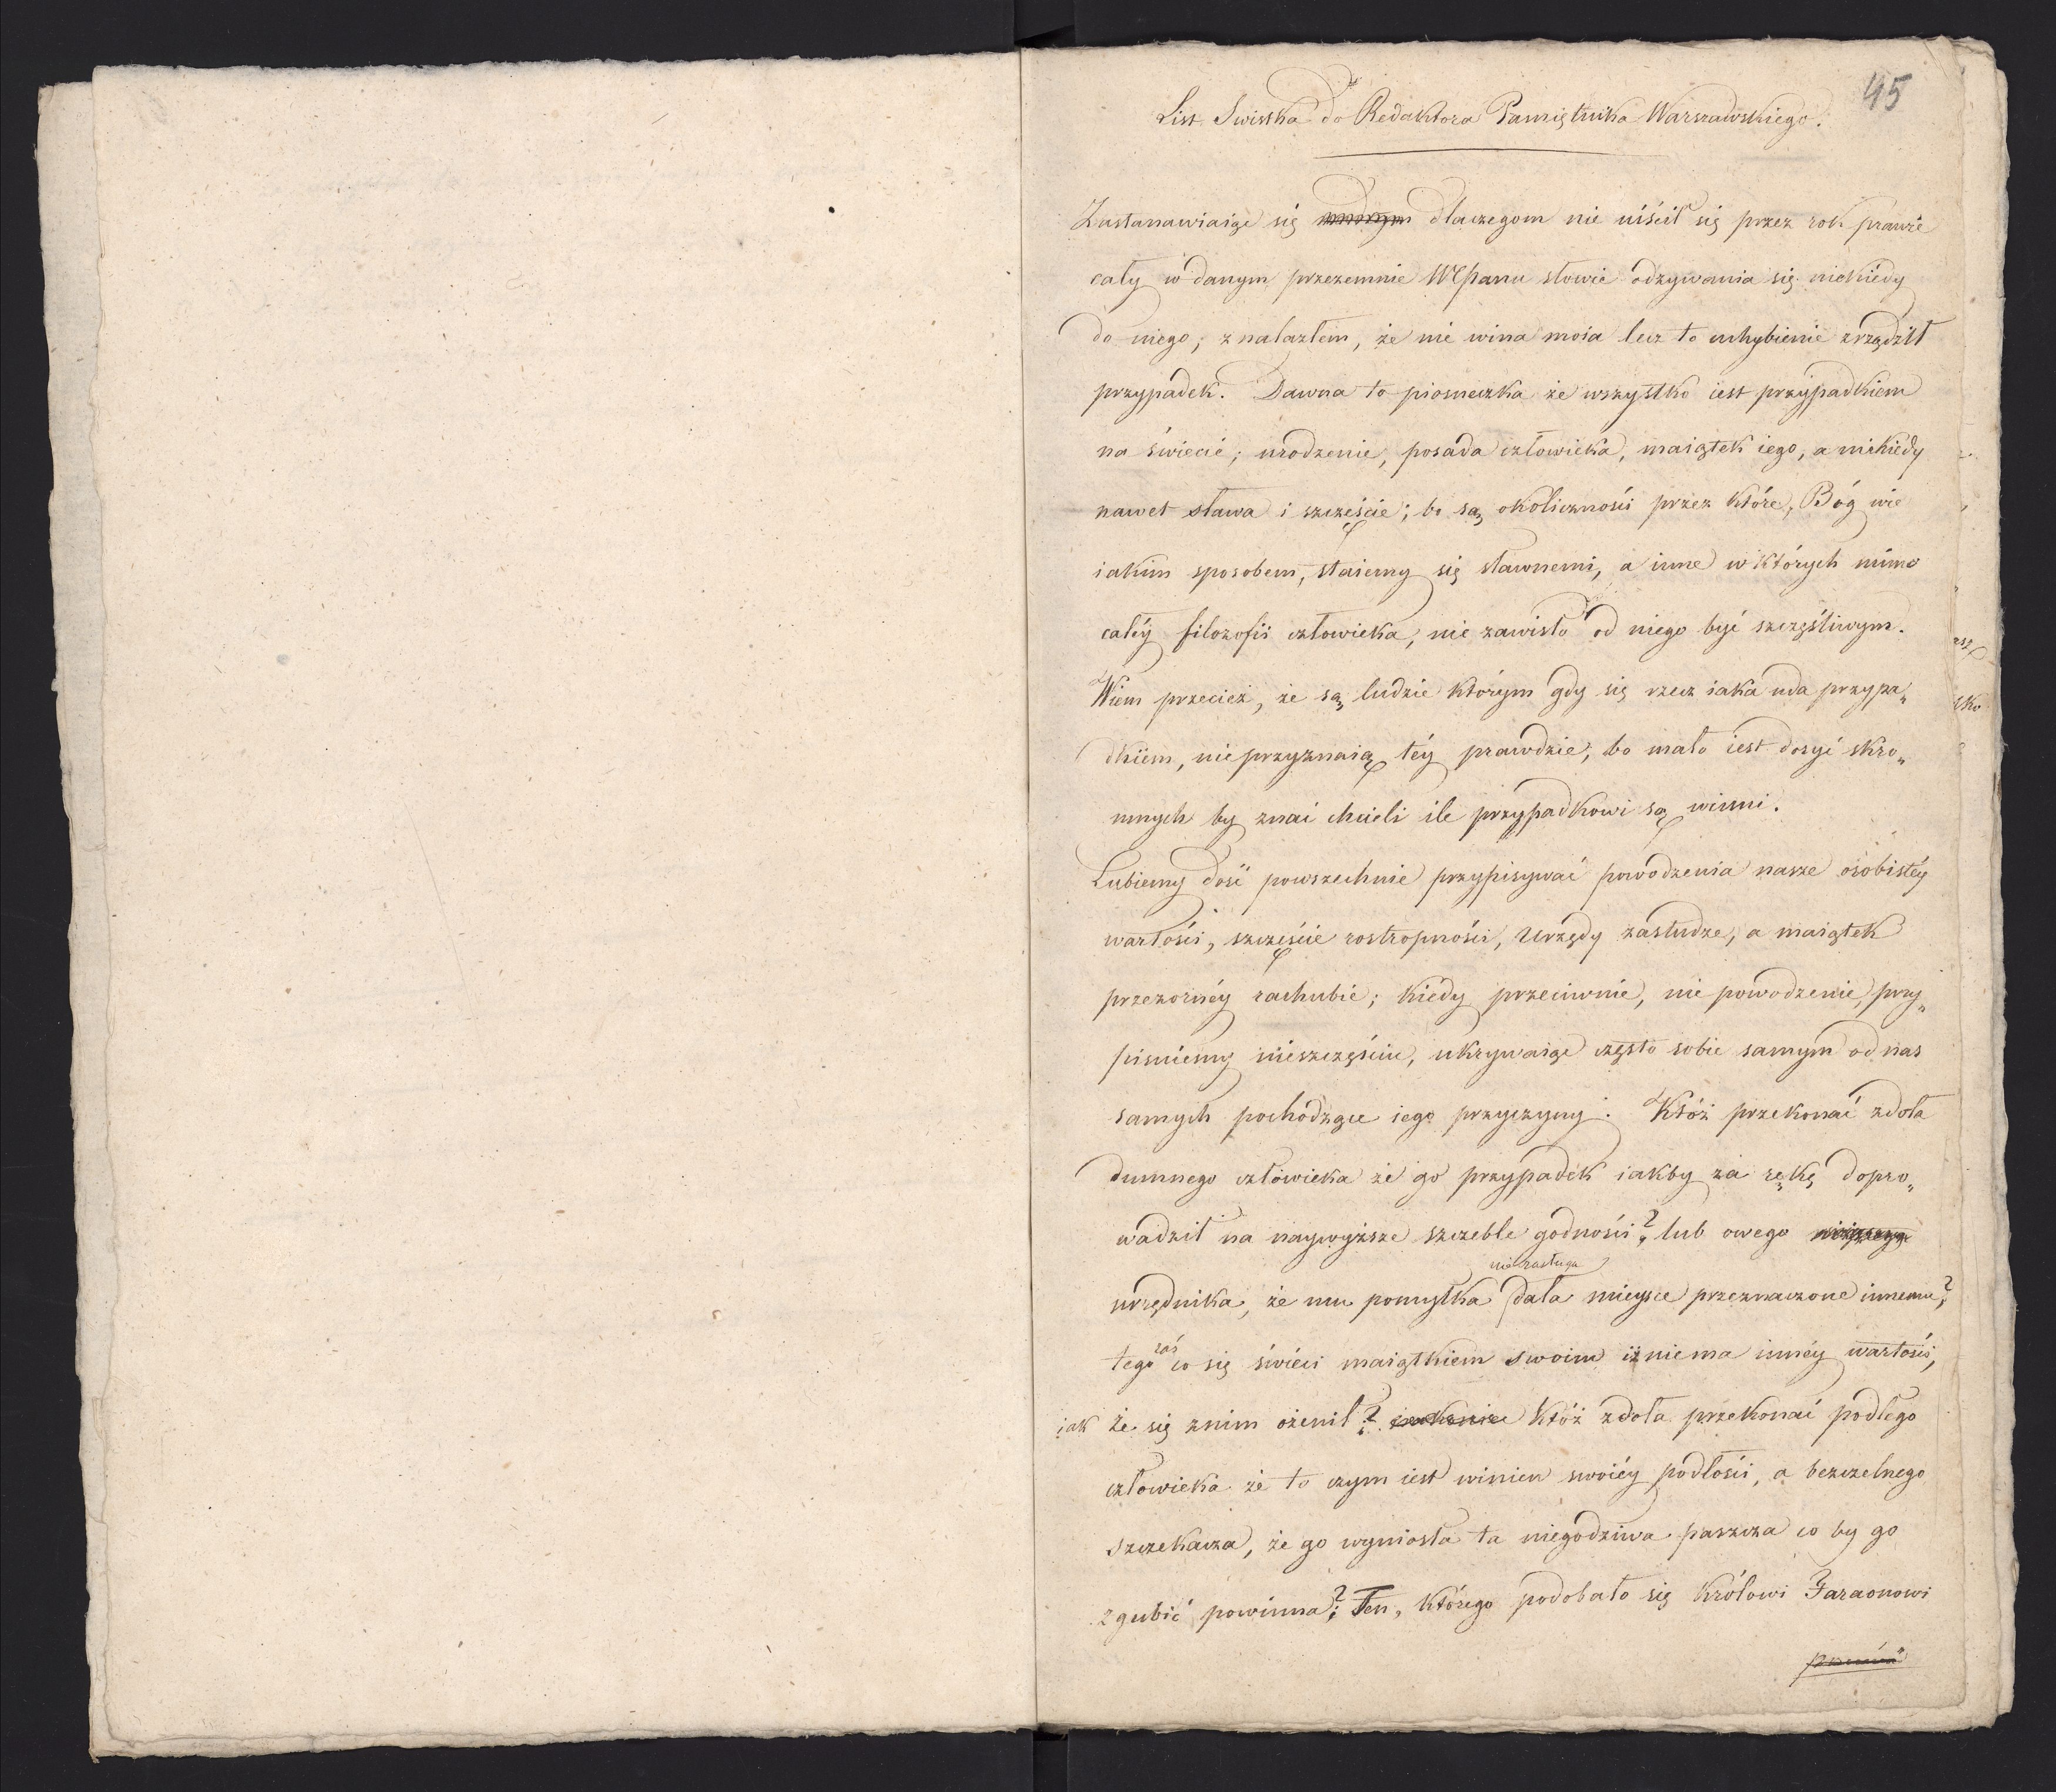 45
List Swistka do Redaktora Pamiętnika Warszawskiego.
Zastanawiaiąc się dlaczegom nie uiścił się przez rok prawie
cały w danym przezemnie WPanu słowie odzywania się niekiedy
do niego; znalazłem, że nie wina moia lecz to uchybienie zrządził
przypadek. Dawna to piosneczka że wszystko iest przypadkiem
na świecie; urodzenie, posada człowieka, maiątek iego, a niekiedy
nawet sława i szczęście; bo są okoliczności przez które, Bóg wie
iakim sposobem, staiemy się sławnemi, a inne w których mimo
całéy filozofii człowieka, nie zawisło od niego być szczęśliwym.
Wiem przecież, że są ludzie którym gdy się rzecz iaka uda przypa„
dkiem, nieprzyznaią téy prawdzie, bo mało iest dosyć skro„
mnych by znać chcieli ile przypadkowi są winni.
Lubiemy dość powszechnie przypisywać powodzenia nasze osobistéy
wartości, szczęście rostropności, Urzędy zasłudze, a maiątek
przezornéy rachubie; kiedy przeciwnie, nie powodzenie, przy„
pisuiemy nieszczęściu, ukrywaiąc często sobie samym od nas
samych pochodzące iego przyczyny. Któż przekonać zdoła
dumnego człowieka że go przypadek iakby za rękę dopro„
wadził na naywyższe szczeble godności? lub owego
nie zasługa
urzędnika, że mu pomyłka dała mieysce przeznaczone innemu?
tego zaś co się świeci maiątkiem swoim iż niema innéy wartości,
iak że się znim ożenił? Któż zdoła przekonać podłego
człowieka że to czym iest winien swoiéy podłości, a bezczelnego
szczekacza, że go wyniosła ta niegodziwa paszcza co by go
zgubić powinna? Ten, którego podobało się Królowi Faraonowi